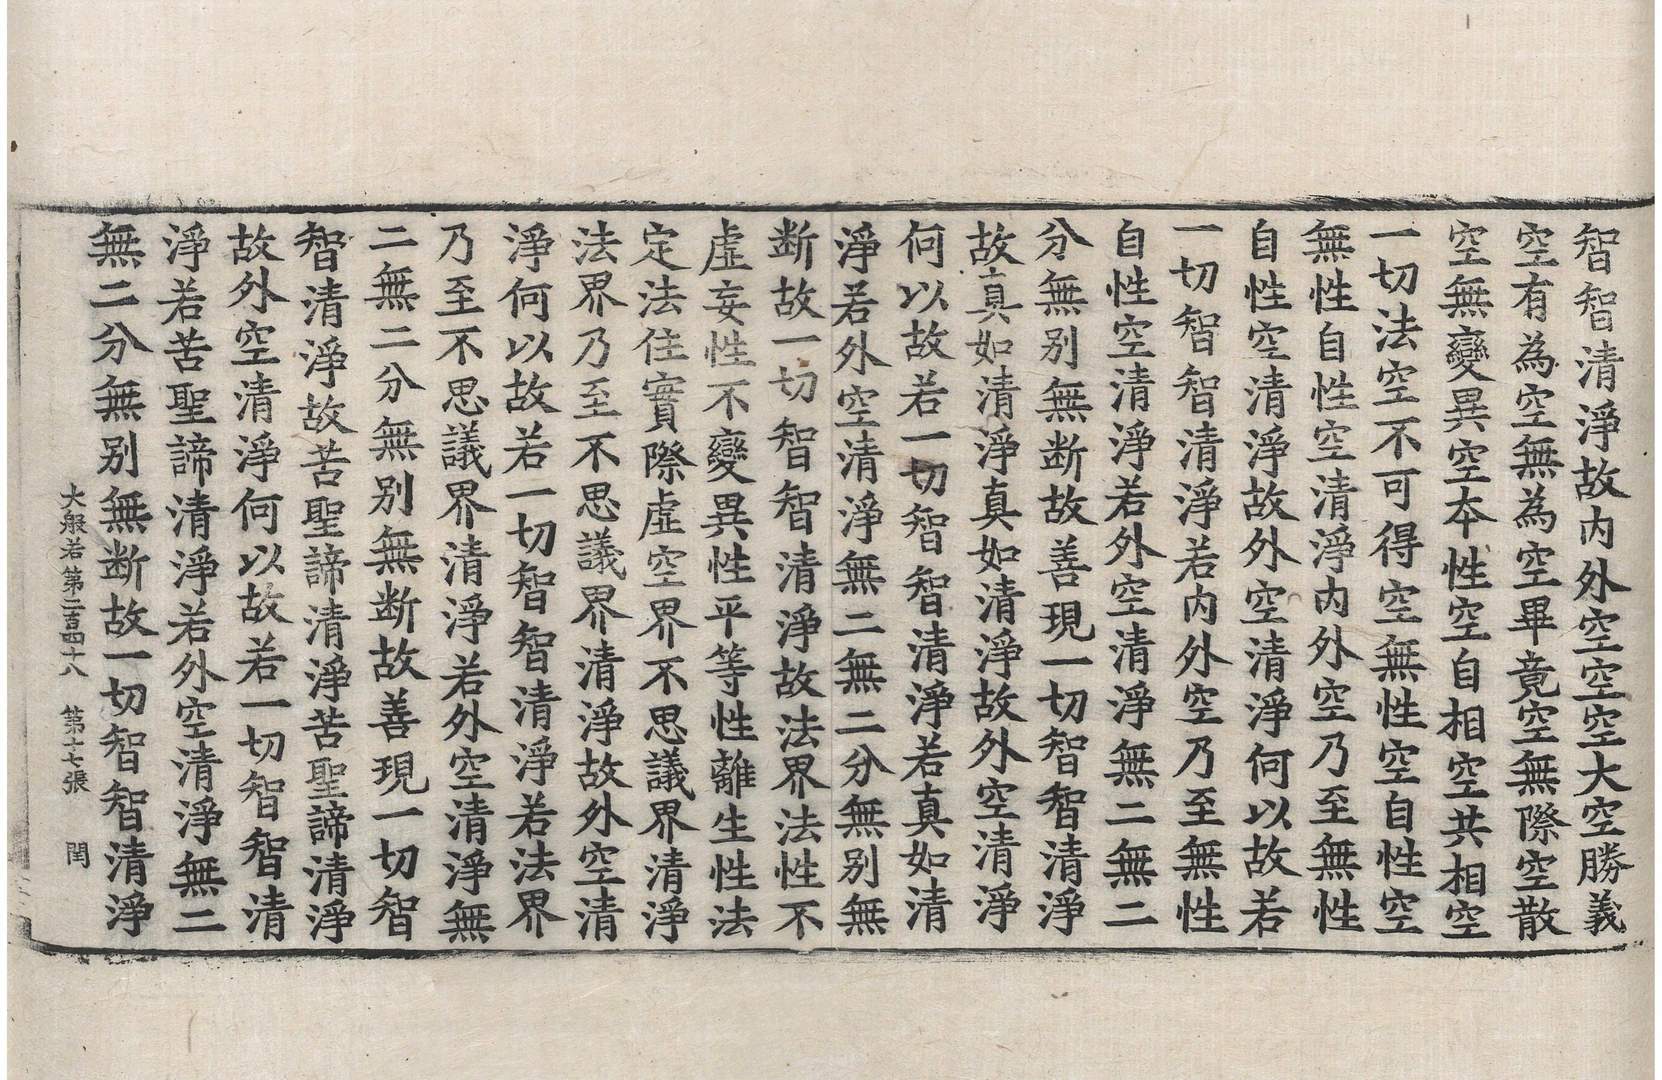 智智清淨故内外空空空大空勝義
空有為空無為空畢竟空無際空散
空無變異空本性空自相空共相空
一切法空不可得空無性空自性空
無性自性空清淨内外空乃至無性
自性空清淨故外空清淨何以故若
一切智智清淨若内外空乃至無性
自性空清淨若外空清淨無二無二
分無別無断故善現一切智智清淨
故真如清淨真如清淨故外空清淨
何以故若一切智智清淨若真如清
淨若外空清淨無二無二分無別無
断故一切智智清淨故法界法性不
虛妄性不變異性平等性離生性法
定法住實際虛空界不思議界清淨
法界乃至不思議界清淨故外空清
淨何以故若一切智智清淨若法界
乃至不思議界清淨若外空清淨無
二無二分無別無断故善現一切智
智清淨故苦聖諦清淨苦聖諦清淨
故外空清淨何以故若一切智智清
淨若苦聖諦清淨若外空清淨無二
無二分無別無断故一切智智清淨
大般若第二百四十八 第十七張 閏